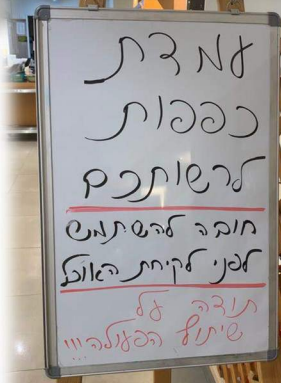 עמדת
כפפות
לרשותכם
חובה להשתמש
לפני לקיחת האוכל
תודה על
שיתוף הפעולה!!!